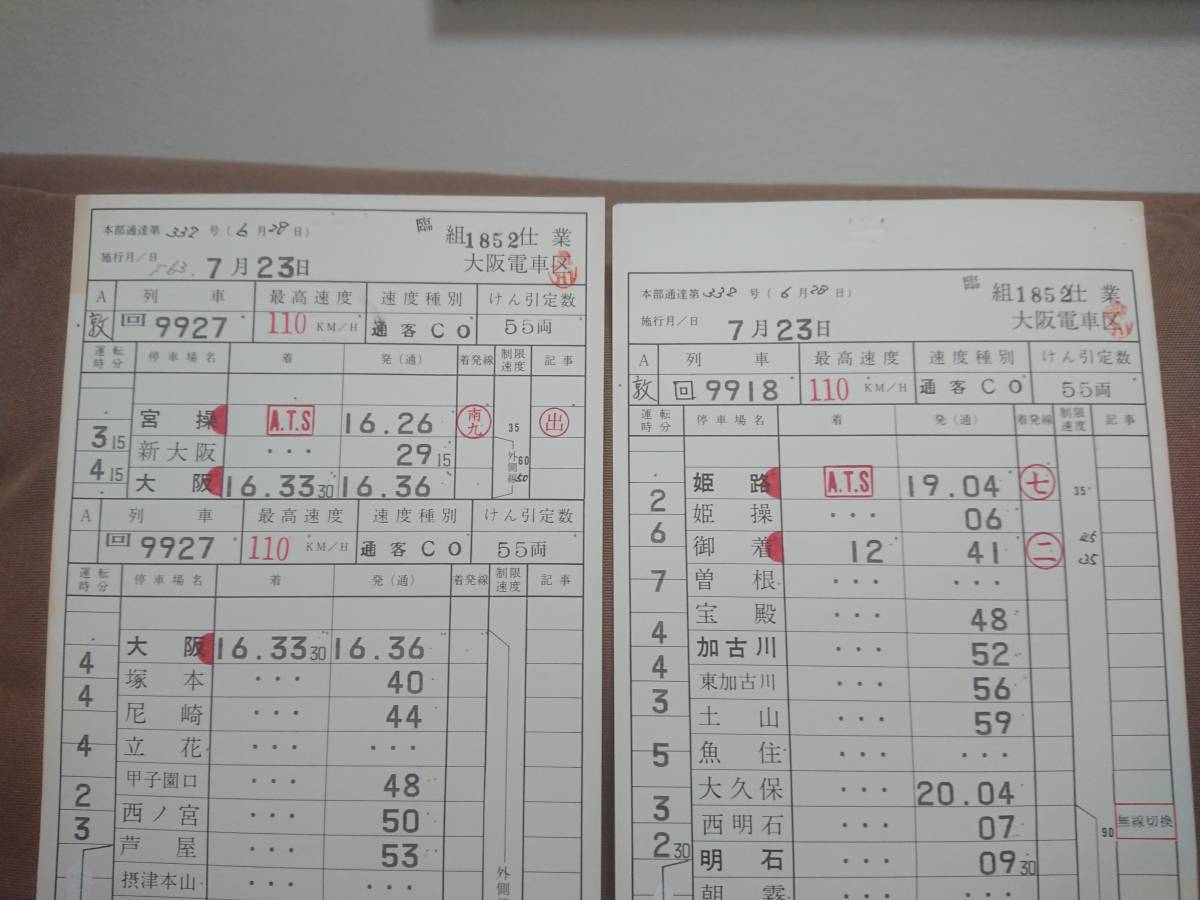 本部通達第 332 号(6月28日)
臨 組1852仕業
施行月/日 S63. 7月23日
大阪電車区
A 列車 最高速度 速度種別 けん引定数
敦 回9927 110 KM/H 通客C0 55両
運転時分 停車場名 着 発(通) 着発線 制限速度 記事
宮操 A.T.S 16.26 南九 35 出
3 15 新大阪 ・・・ 29 15 外側線 60
4 15 大阪 16.33 30 16.36 50
A 列車 最高速度 速度種別 けん引定数
回9927 110 KM/H 通客C0 55両
運転時分 停車場名 着 発(通) 着発線 制限速度 記事
大阪 16.33 30 16.36
4 塚本 ・・・ 40
4 尼崎 ・・・ 44
立花 ・・・ ・・・
4 甲子園口 ・・・ 48
2 西ノ宮 ・・・ 50
3 芦屋 ・・・ 53
摂津本山 ・・・ ・・・
外側
本部通達第338号(6月28日)
臨 組1852仕業
施行月/日 7月23日
大阪電車区
A 列車 最高速度 速度種別 けん引定数
敦 回9918 110 KM/H 通客C0 55両
運転時分 停車場名 着 発(通) 着発線 制限速度 記事
姫路 A.T.S 19.04 七 35
2 姫操 ・・・ 06
6 御着 12 41 二 35
7 曽根 ・・・ ・・・
宝殿 ・・・ 48
4 加古川 ・・・ 52
4 東加古川 ・・・ 56
3 土山 ・・・ 59
魚住 ・・・ ・・・
5 大久保 ・・・ 20.04
3 西明石 ・・・ 07 90 無線切換
2 30 明石 ・・・ 09 30
朝霧 ・・・ ・・・